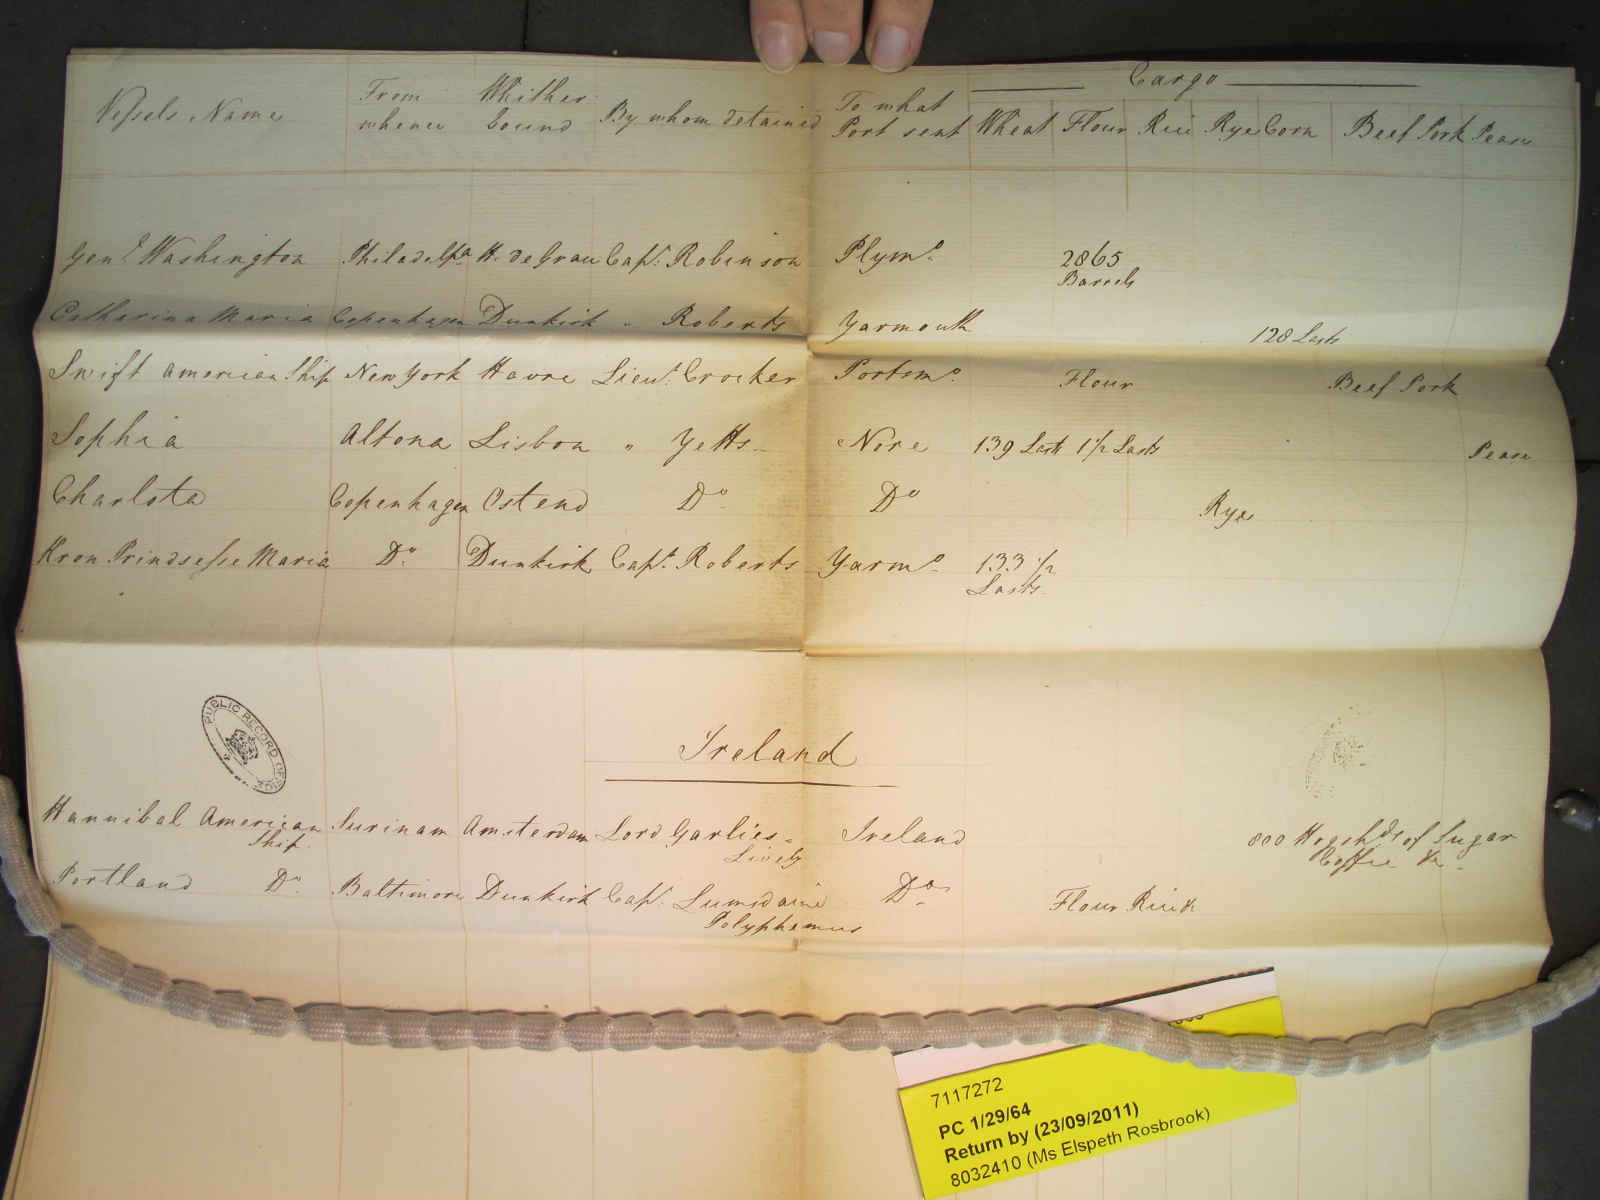 Cargo
Vessels Name From whence Whither bound By whom detained To what Port sent Wheat Flour Rice Rye Corn Beef Pork Pease
Genl. Washington Philadelpa. H. de Grau Capt. Robinson Plymo. 2865 Barrels
Catharina Maria Copenhagen Dunkirk " Roberts Yarmouth 128 Lasts
Swift American Ship New York Havre Lieut. Crocker Portsmo. Flour Beef Pork
Sophia Altona Lisbon " Yetts Nore 139 Lasts 1 1/2 Lasts Pease
Charlota Copenhagen Ostend Do. Do Rye
Kron Prindsesse Maria Do. Dunkirk Capt. Roberts Yarmo. 133 1/2 Lasts
PUBLIC RECORD OFFICE
Ireland
Hannibal American Ship Surinam Amsterdam Lord Garlies = Lively Ireland 800 Hogshds of Sugar Coffee &c
Portland Do. Baltimore Dunkirk Capt. Lumsdaine Polyphemus Do. Flour Rice &
7117272
PC 1/29/64
Return by (23/09/2011)
8032410 (Ms Elspeth Rosbrook)